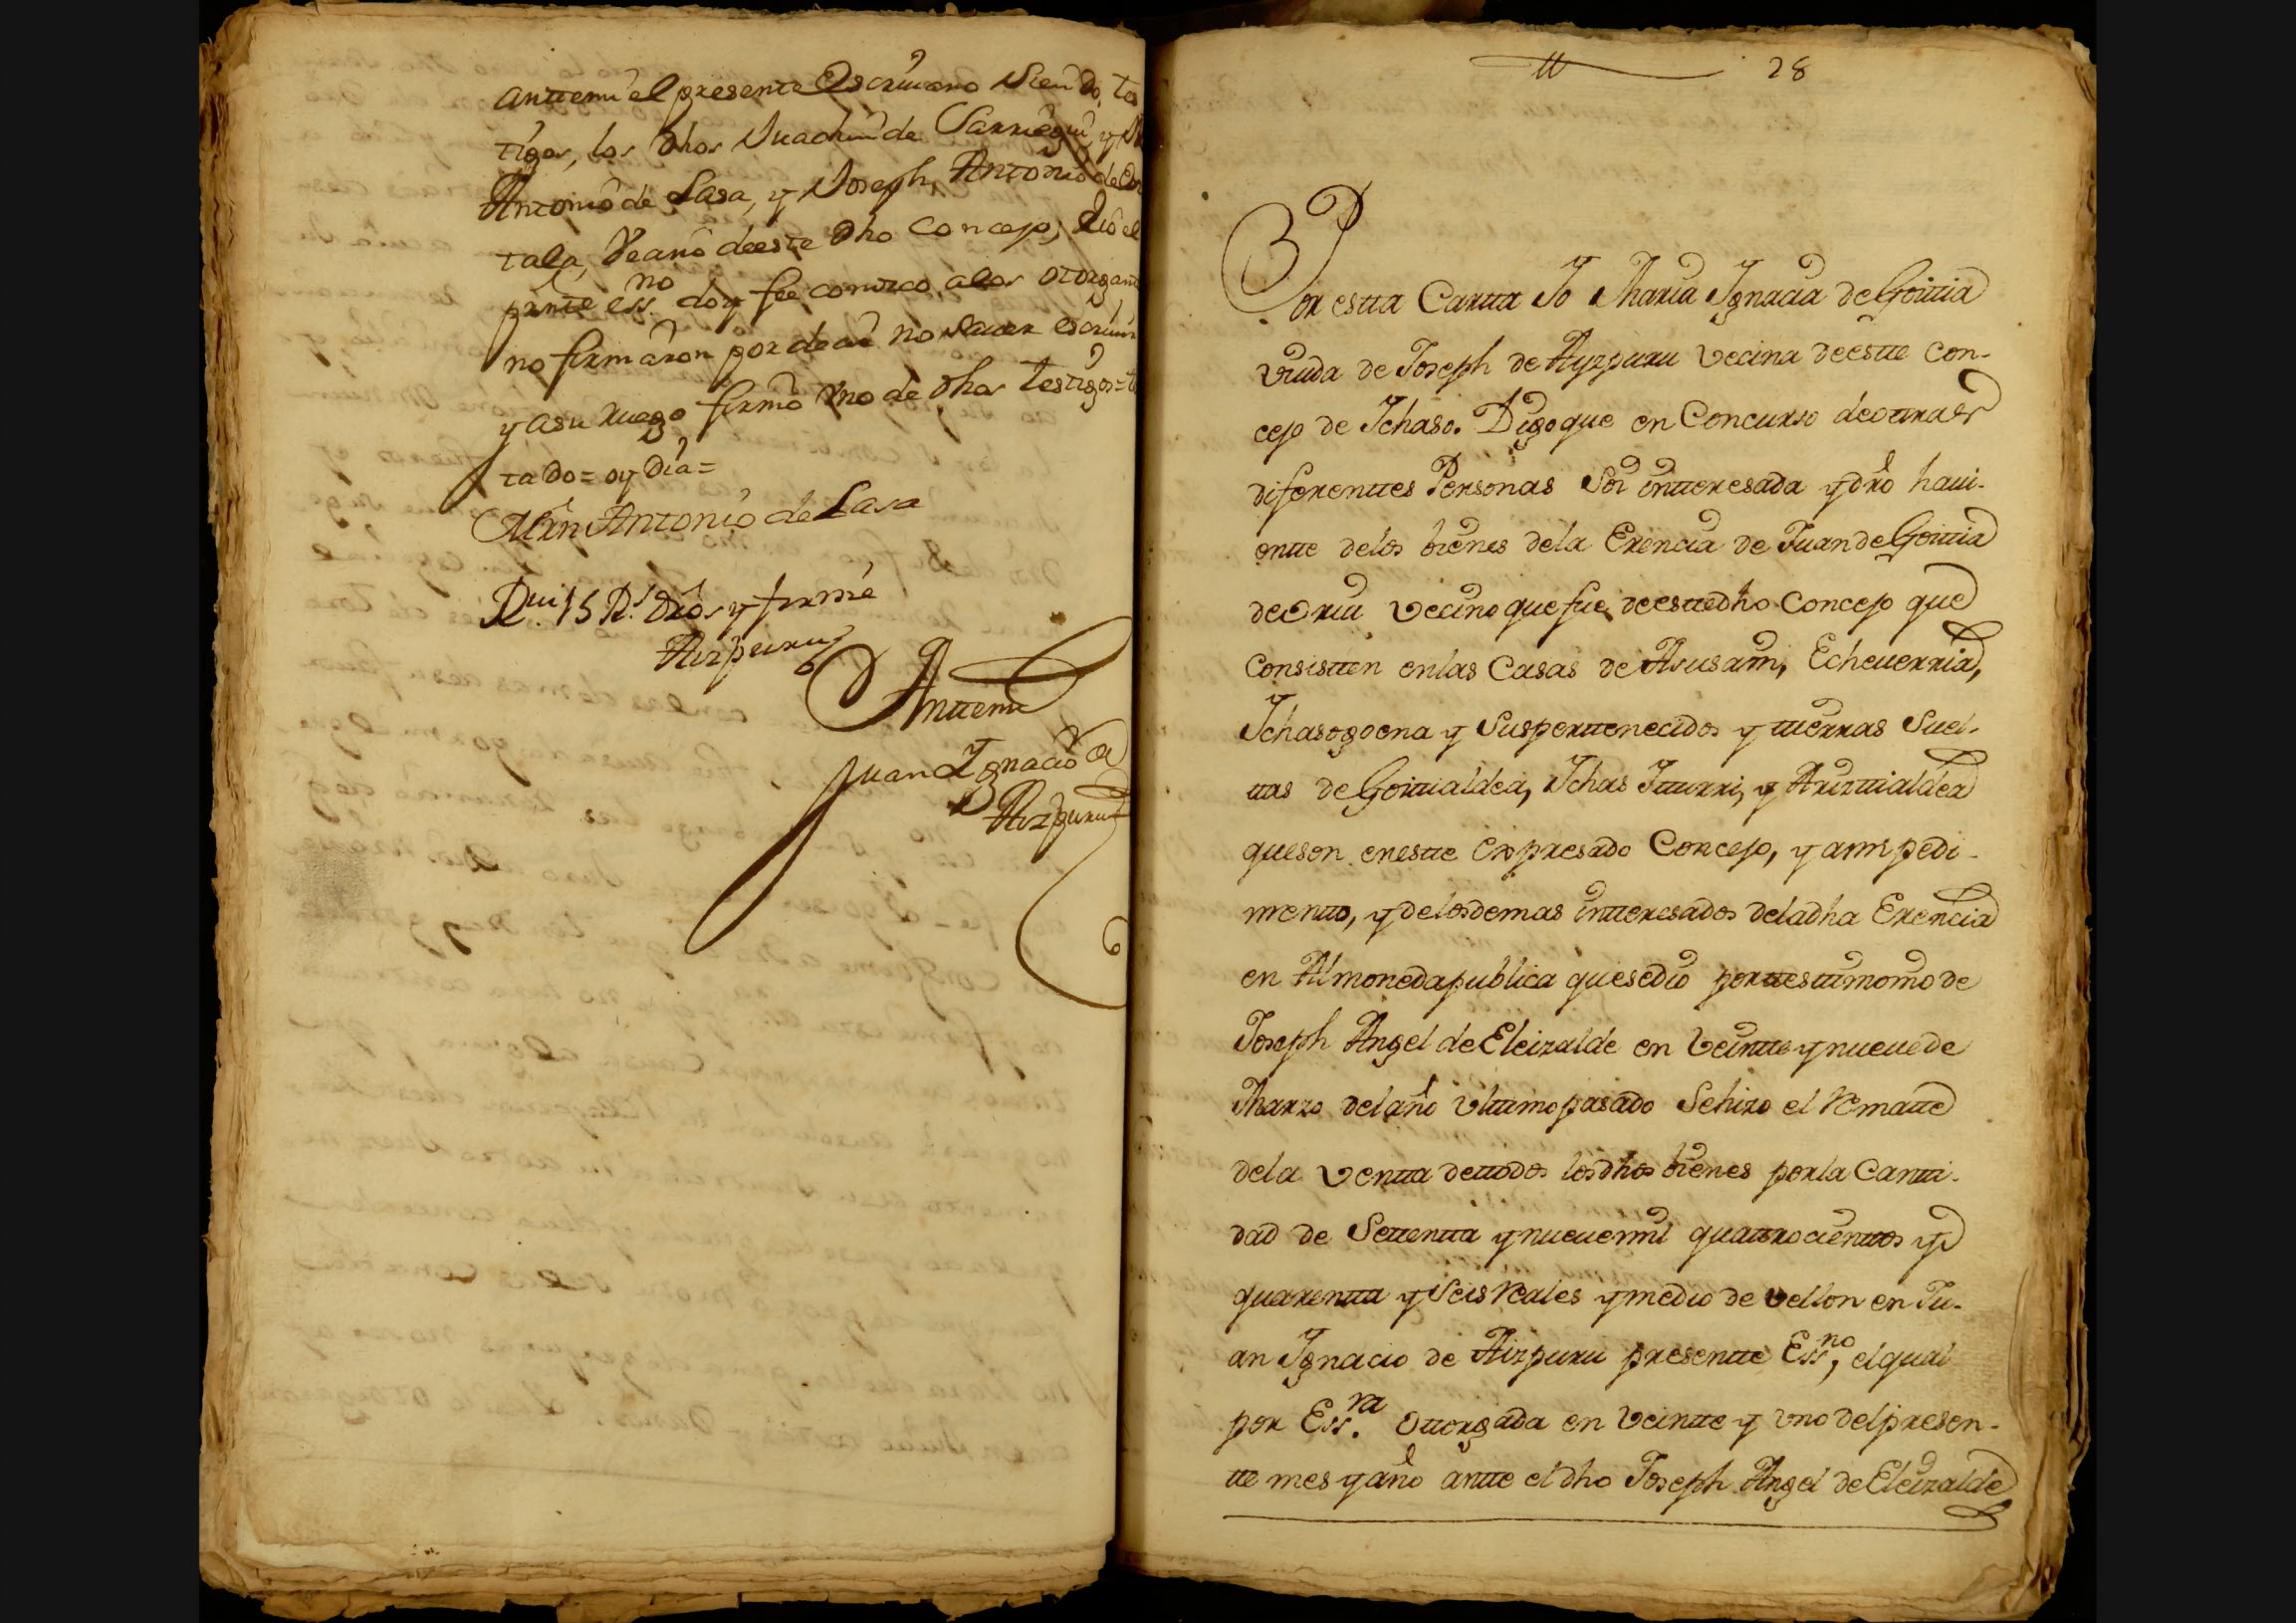 anttemi el presente Escriuano Siendo, tes
tigos, los dhos Juachin de Sarriegui, y
Antonio de Lasa, y Joseph Antonio de
tala, Veano deeste dho Concejo, Ᵹo el
prnte ess.no doy fee conozco, alos otorgant
no firmaron por decir no sauer escriuir
y asu ruego firmó vno de dhos testigos=
tado= oy dia=
Mrn Antonio de Lasa
Rui 15 Rs. dros y firmé
Aizpuru
Anttemi
Juan Ygnacio de
Aizpuru
28
Por estta Cartta Yo Maria Ygnacia de Goittia
viuda de Joseph de Ayzpuru vecina deestte con-
cejo de Ychaso. Digo que en Concurso deottras
diferenttes Personas Soi intteresada ydro haui-
entte delos bienes dela Erencia de Juan de Goittia
de Oriu vecino que fue, deesttedho Concejo que
Consistten enlas Casas de Asusarri, Echeuerria,
Ychasogoena y Susperttenecidos y ttierras Suel-
ttas de Goittialdea, Ychas Ytturri, y Arizttialdea
queson enestte expresado Concejo, y ami pedi-
mentto, y delosdemas intteresados deladha Erencia
en Almonedapublica quesedio porttesttimonio de
Joseph Angel de Eleizalde en Veintte ynueuede
Marzo delaño vlttimo pasado Sehizo el Rematte
dela Ventta dettodos losdhos bienes porla Cantti-
dad de Settentta ynueuemil quattrocienttos y
quarentta y Seis Reales ymedio de vellon en Ju-
an Ygnacio de Aizpuru presentte Ess.no, elqual
por Ess.ra Ottorgada en Veintte y vno delpresen-
tte mes yaño antte el dho Joseph Angel de Eleizalde